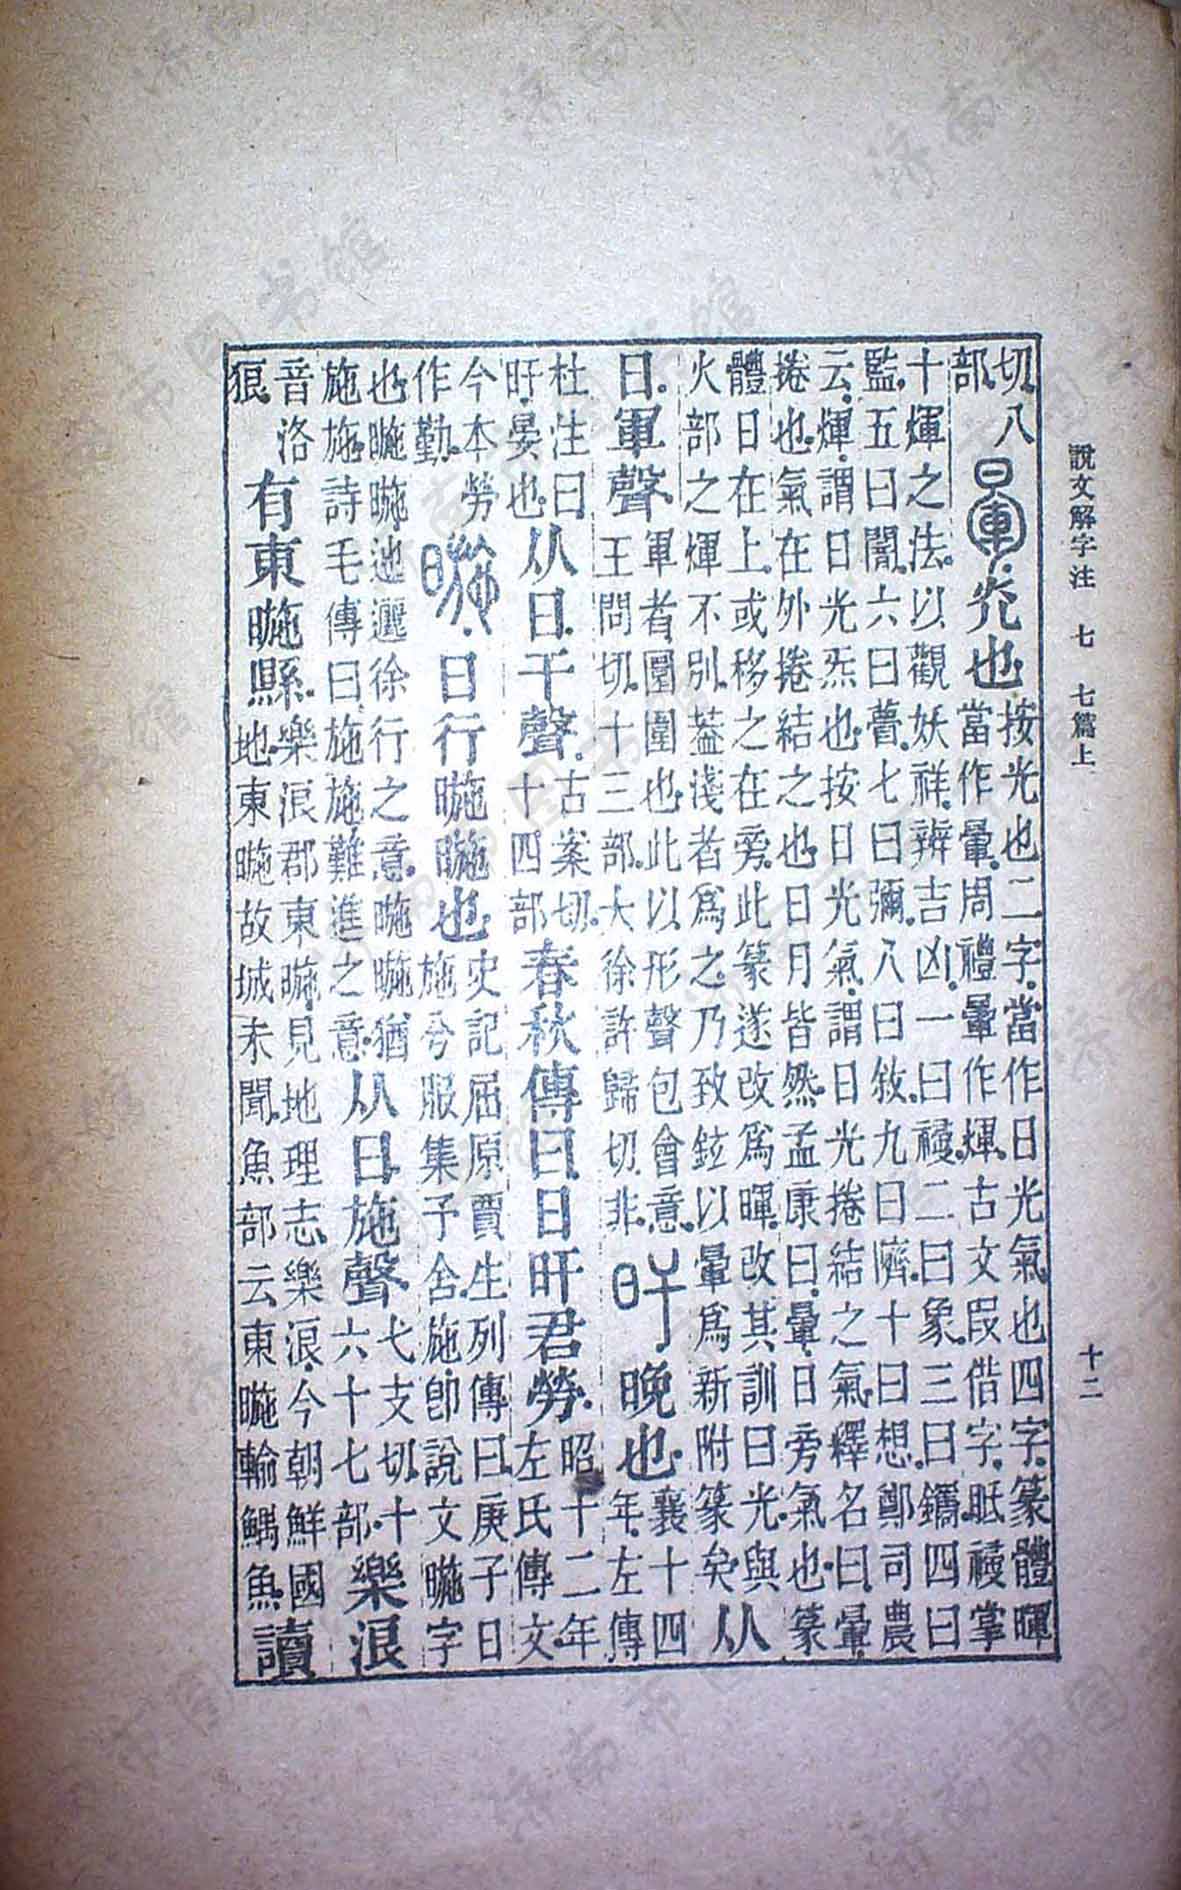 說文解字注 七 七篇上 十二
切.八部.暈.光也.按光也二字.當作日光氣也四字.篆體暉當作暈.周禮暈作煇.古文叚借字.眡祲掌
十煇之法.以觀妖祥.辨吉凶.一曰祲.二曰象.三曰鑴.四曰監.五曰闇.六曰瞢.七曰彌.八曰敘.九曰隮.十曰想.鄭司農
云.煇.謂日光炁也.按日光氣.謂日光捲結之氣.釋名曰.暈.捲也.氣在外捲結之也.日月皆然.孟康曰.暈.日旁氣也.篆
體日在上.或移之在旁.此篆遂改爲暉.改其訓曰光.與火部之煇不別.葢淺者爲之.乃致鉉以暈爲新附篆矣.从
日.軍聲.軍者.圍圍也.此以形聲包會意.王問切.十三部.大徐許歸切.非.旰.晚也.襄十四年.左傳
杜注曰旰.晏也.从日.干聲.古案切.十四部春秋傳曰.日旰君勞.昭十二年.左氏傳文.
今本勞作勤.暆.日行暆暆也.史記屈原賈生列傳曰.庚子日施兮服集予舍.施.卽說文暆字
也.暆暆.迆邐徐行之意.暆暆猶施施.詩毛傳曰.施施.難進之意.从日.施聲弋支切.十六十七部.樂浪
音洛狼.有東暆縣.樂浪郡東暆.見地理志.樂浪.今朝鮮國地.東暆故城未聞.魚部云東暆輸鰅魚.讀